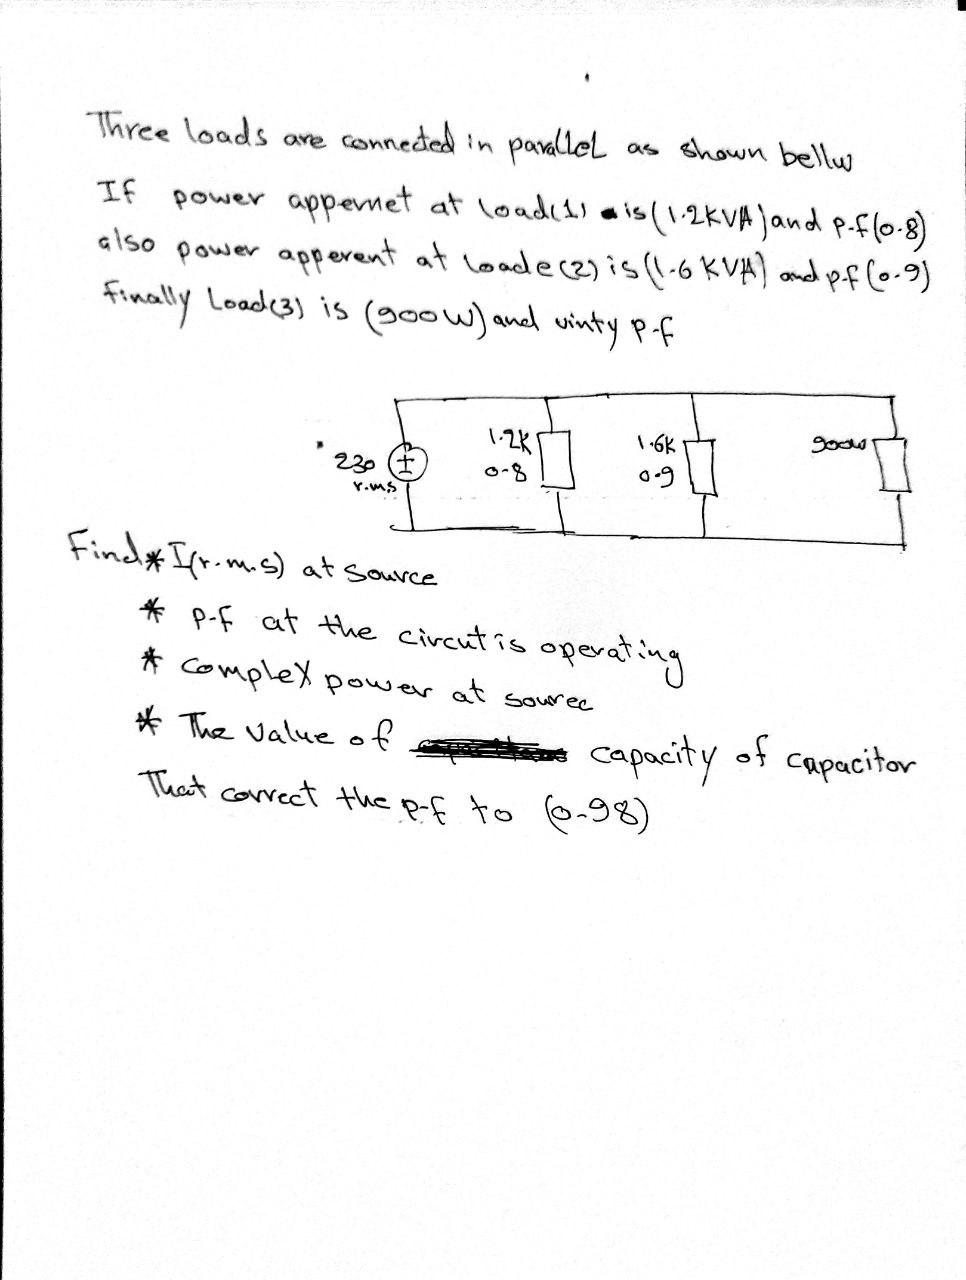 Three loads are connected in parallel as shown bellw
If power appernet at load(1) is (1.2KVA) and p.f(0.8)
also power apperent at loade(2) is (1.6 KVA) and p.f (0.9)
finally Load(3) is (900W) and uinty p.f
1.2K
1.6K
900w
230
0.8
0.9
r.m.s
Find * I(r.m.s) at source
* p.f at the circut is operating
* complex power at sourec
* The value of capacity of capacitor
That correct the p.f to (0.98)